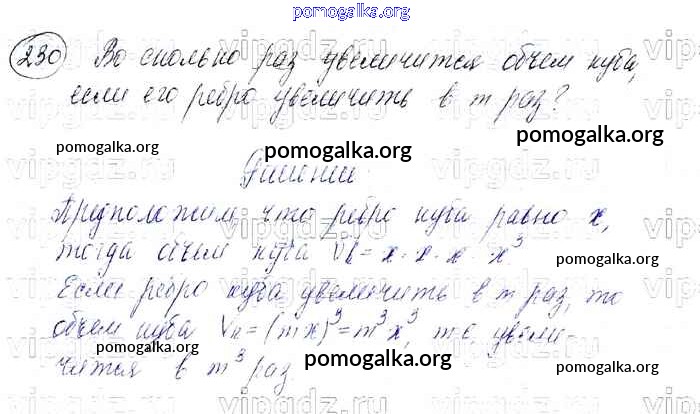 pomogalka.org
230 Во сколько раз увеличится объем куба,
если его ребро увеличить в m раз?
pomogalka.org
pomogalka.org
pomogalka.org
Решение:
Предположим что ребро куба равно x,
тогда объем куба Vk = x · x · x · x³
pomogalka.org
Если ребро куба увеличить в m раз, то
объем куба Vk = (mx)³ = m³ · x³, т е увели
pomogalka.org
pomogalka.org
pomogalka.org
чится в m³ раз